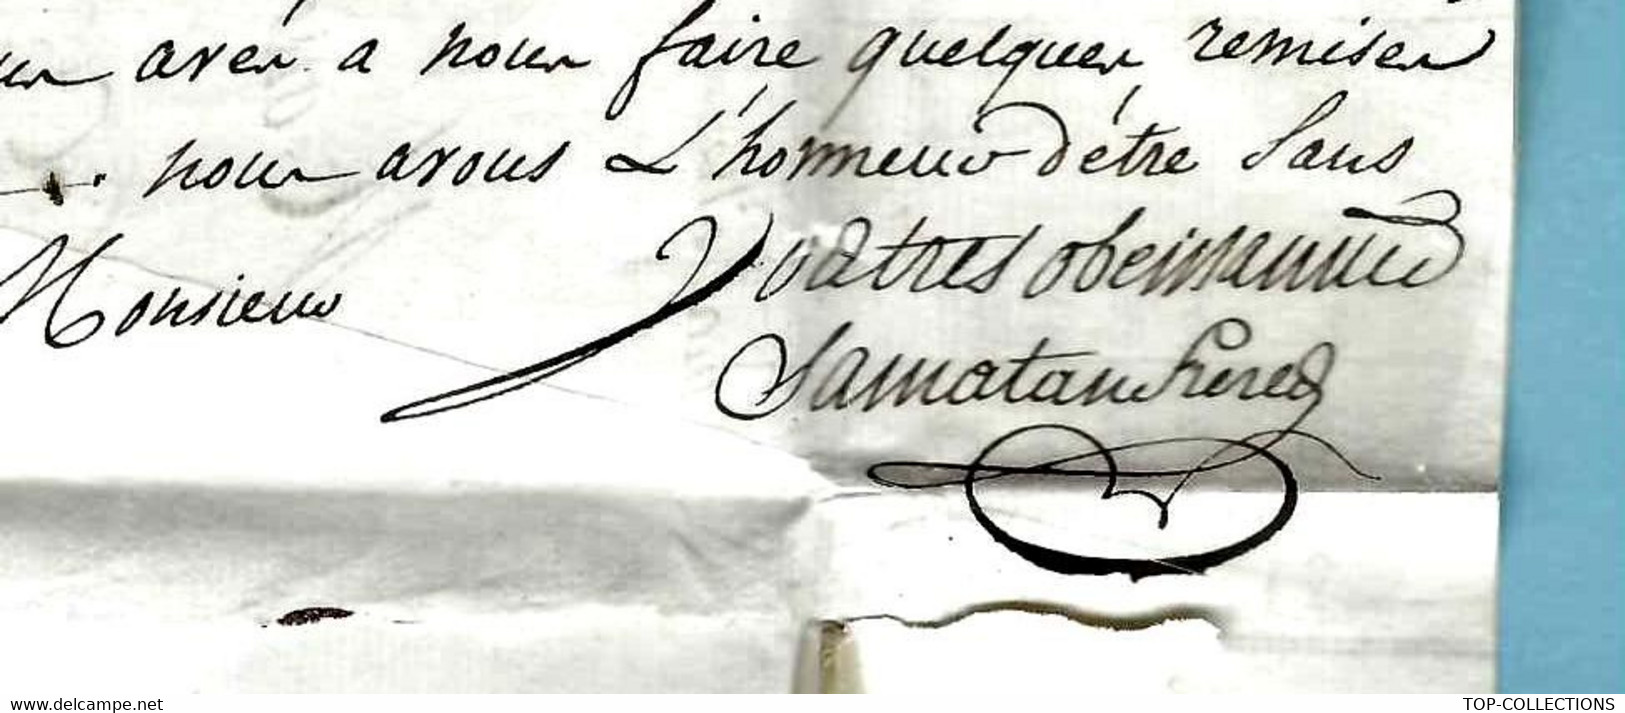 avés a nous faire quelques remises
nous avons L'honneur d'être Sans
Monsieur Vos tres obeissants
Samatan freres
www.delcampe.net TOP-COLLECTIONS